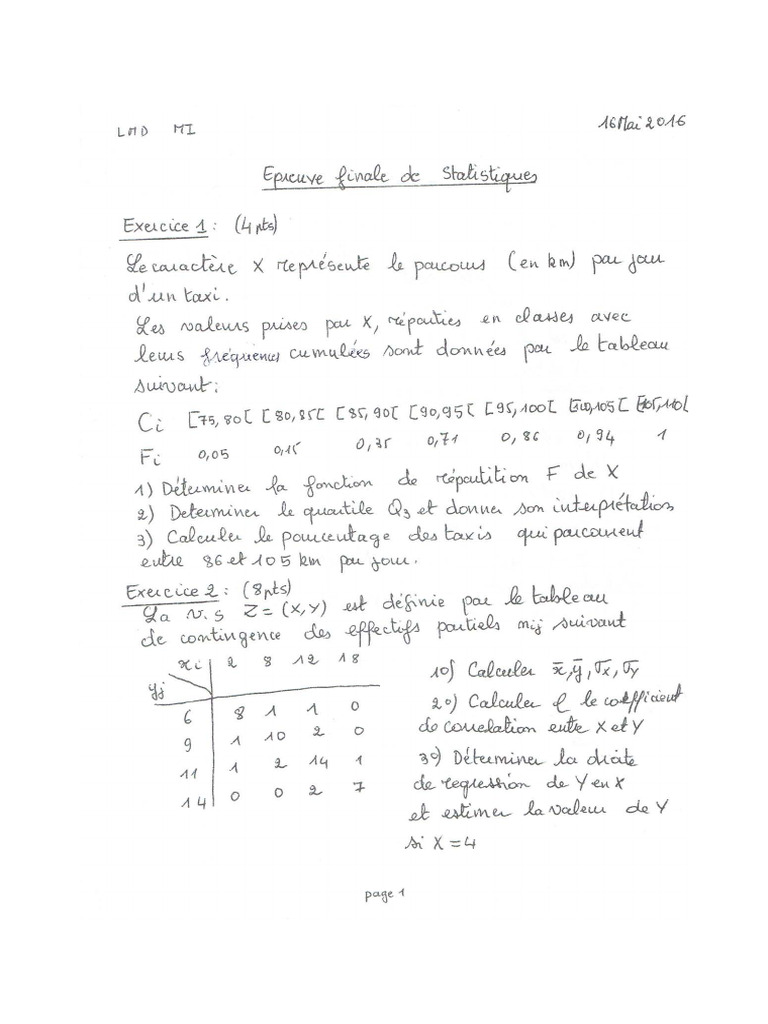 LMD MI
16 Mai 2016
Epreuve finale de Statistiques
Exercice 1 : (4 pts)
Le caractère X représente le parcours (en km) par jour
d'un taxi.
Les valeurs prises par X, réparties en classes avec
leurs fréquences cumulées sont données par le tableau
suivant :
Ci [75,80[ [80,85[ [85,90[ [90,95[ [95,100[ [100,105[ [105,110[
Fi 0,05 0,15 0,35 0,71 0,86 0,94 1
1) Déterminer la fonction de répartition F de X
2) Determiner le quartile Q3 et donner son interprétation
3) Calculer le pourcentage des taxis qui parcourent
entre 86 et 105 km par jour.
Exercice 2 : (8pts)
La v.s Z = (X,Y) est définie par le tableau
de contingence des effectifs partiels nij suivant
xi 2 8 12 18
yj
6 8 1 1 0
9 1 10 2 0
11 1 2 14 1
14 0 0 2 7
1°) Calculer x̄, ȳ, σx, σy
2°) Calculer ρ le coefficient
de correlation entre X et Y
3°) Déterminer la droite
de regression de Y en X
et estimer la valeur de Y
si X = 4
page 1